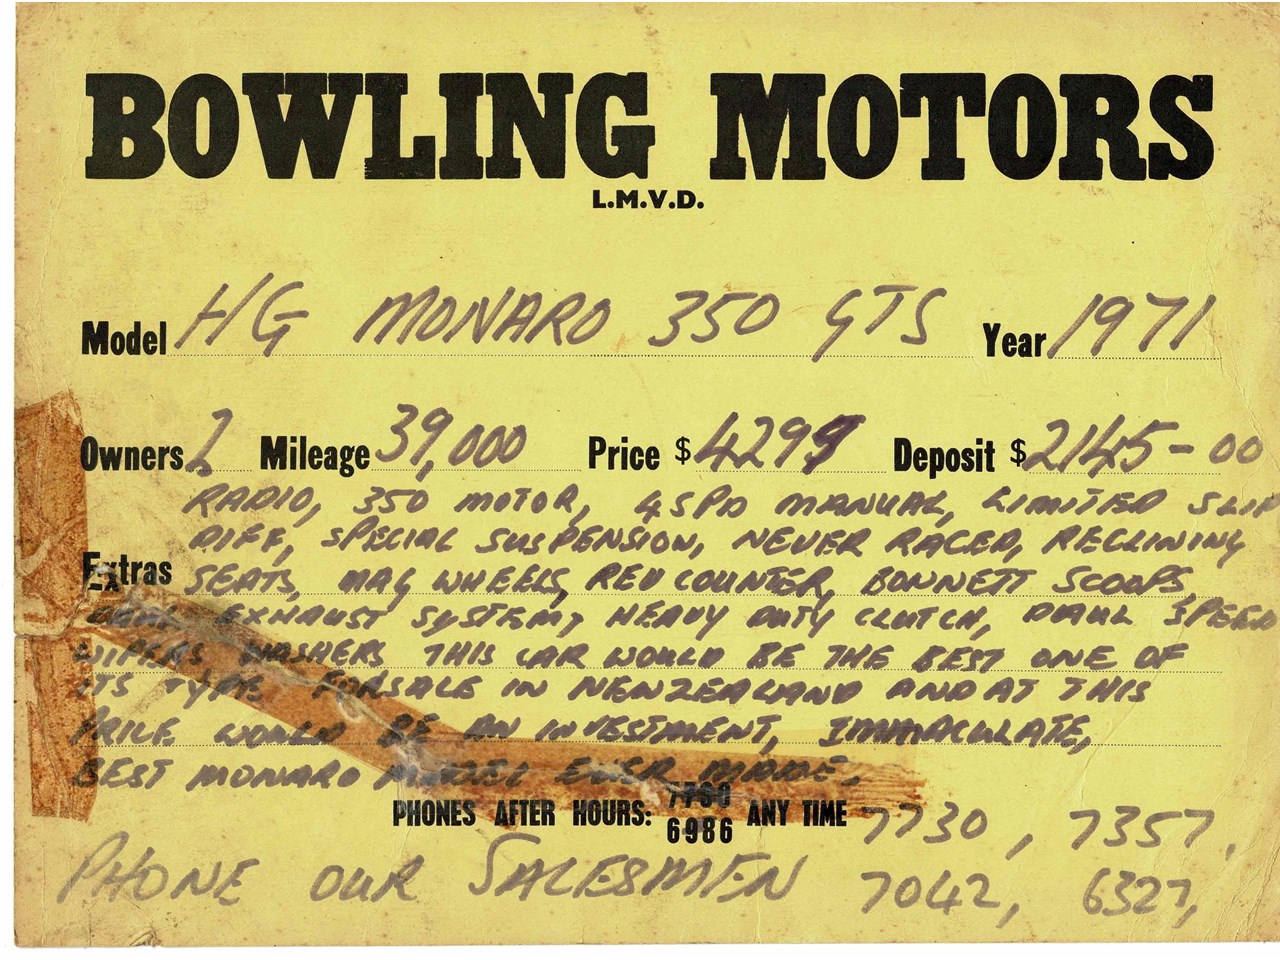 BOWLING MOTORS
L.M.V.D.
Model HG MONARO 350 GTS Year 1971
Owners 2 Mileage 39,000 Price $4299 Deposit $2145-00
RADIO, 350 MOTOR, 4 SPD MANUAL, LIMITED SLIP
DIFF, SPECIAL SUSPENSION, NEVER RACED, RECLINING
Extras SEATS, MAG WHEELS, REV COUNTER, BONNETT SCOOPS,
EXHAUST SYSTEM, HEAVY DUTY CLUTCH, DUAL SPEED
WIPERS WASHERS THIS CAR WOULD BE THE BEST ONE OF
ITS TYPE FORSALE IN NEWZEALAND AND AT THIS
PRICE WOULD BE AN INVESTMENT, IMMACULATE,
BEST MONARO MODEL EVER MADE,
PHONES AFTER HOURS: 7730 6986 ANY TIME 7730, 7357,
PHONE OUR SALESMEN 7042, 6327,